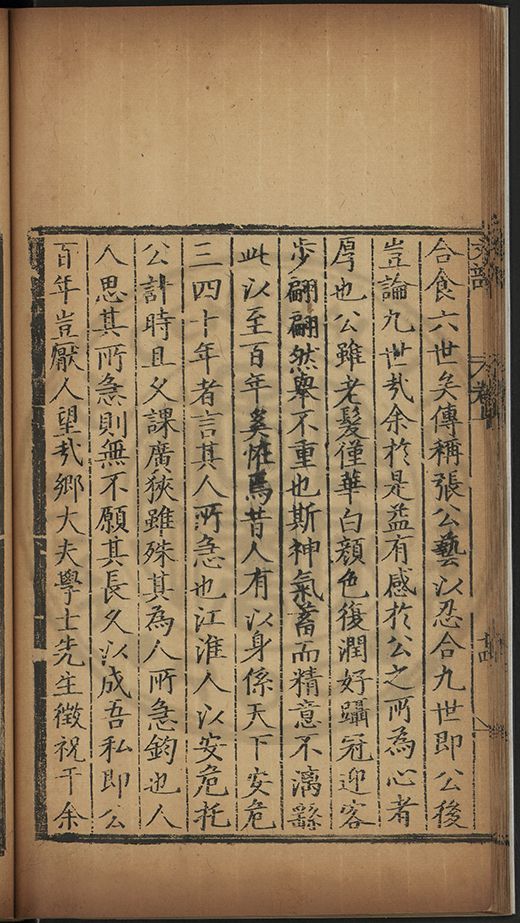 合食六世矣傳稱張公藝以忍合九世即公後
豈論九世㢤余於是益有感於公之所為心者
厚也公雖老髮僅華白顔色復潤好躡冠迎客
步翩翩然舉不重也斯神氣蓄而精意不漓繇
此以至百年奚恠焉昔人有以身係天下安危
三四十年者言其人所急也江淮人以安危托
公計時且久課廣狹雖殊其為人所急鈞也人
人思其所急則無不願其長久以成吾私即公
百年豈厭人望㢤鄉大夫學士先生徵祝于余